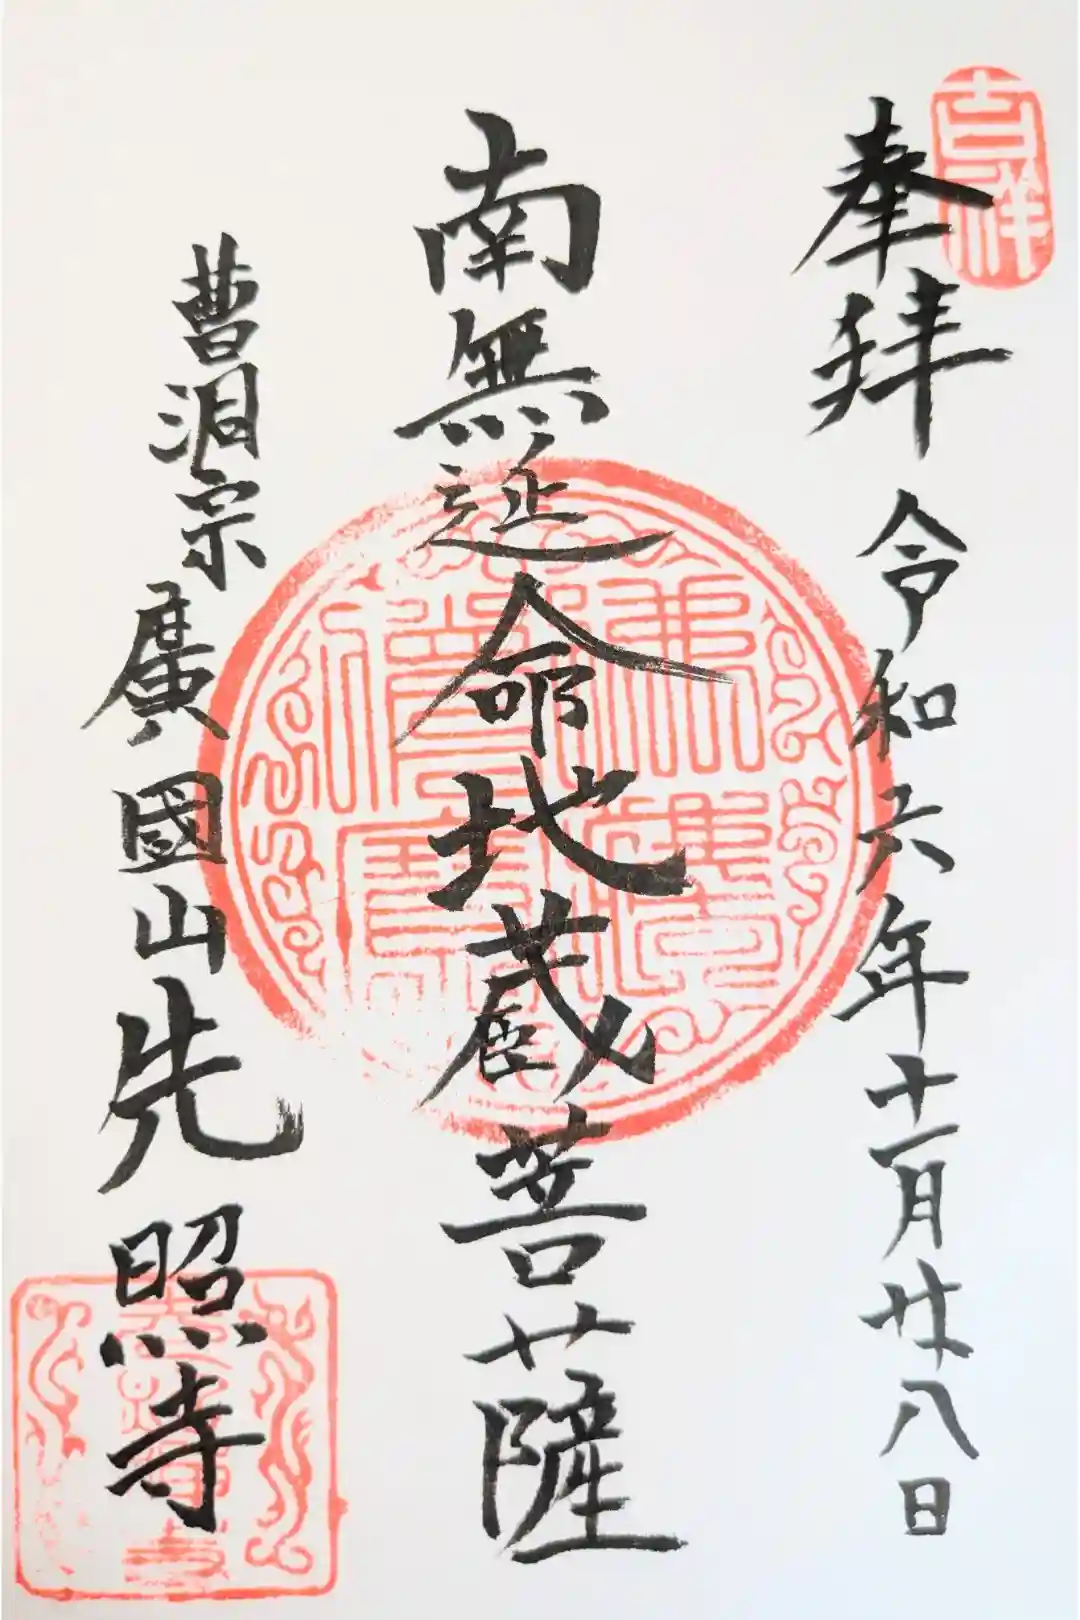 吉祥
奉拝 令和六年十一月廿八日
南無延命地蔵菩薩
佛法僧寶
曹洞宗 廣國山 先照寺